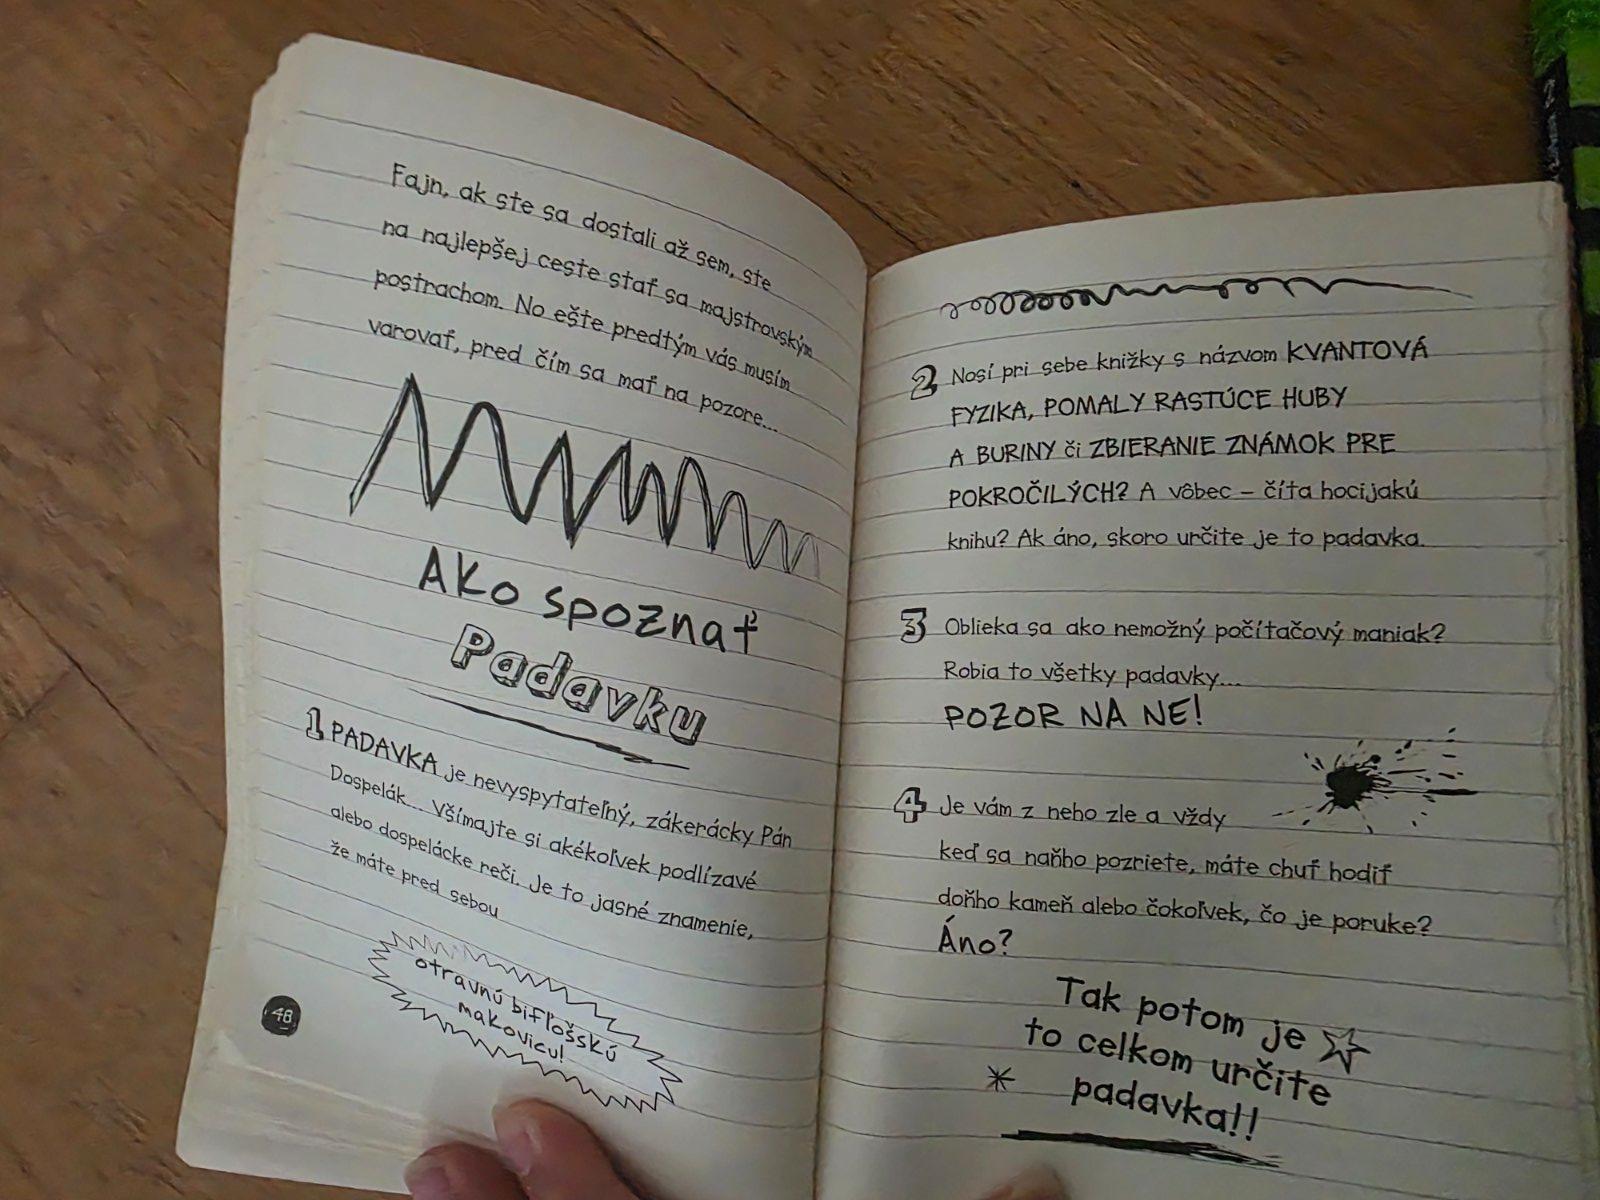 Fajn, ak ste sa dostali až sem, ste
na najlepšej ceste stať sa majstrovským
postrachom. No ešte predtým vás musím
varovať, pred čím sa mať na pozore...
Ako spoznať
Padavku
1 PADAVKA je nevyspytateľný, zákerácky Pán
Dospelák... Všímajte si akékoľvek podlízavé
alebo dospelácke reči. Je to jasné znamenie,
že máte pred sebou
otravnú bifľošskú
makovicu!
48
2 Nosí pri sebe knižky s názvom KVANTOVÁ
FYZIKA, POMALY RASTÚCE HUBY
A BURINY či ZBIERANIE ZNÁMOK PRE
POKROČILÝCH? A vôbec – číta hocijakú
knihu? Ak áno, skoro určite je to padavka.
3 Oblieka sa ako nemožný počítačový maniak?
Robia to všetky padavky...
POZOR NA NE!
4 Je vám z neho zle a vždy
keď sa naňho pozriete, máte chuť hodiť
doňho kameň alebo čokoľvek, čo je poruke?
Áno?
Tak potom je
to celkom určite
padavka!!